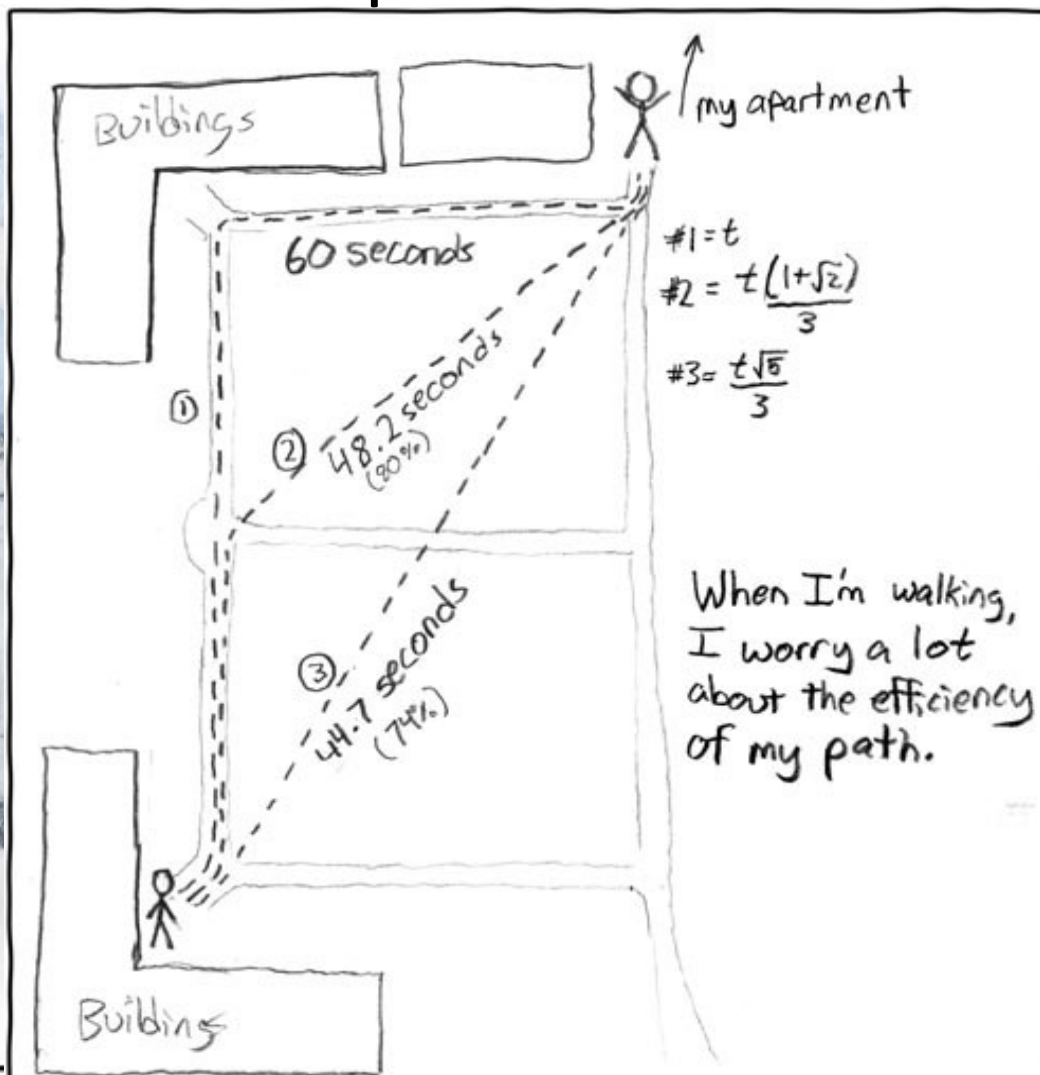 Buildings
my apartment
60 seconds
#1 = t
#2 = t(1+√2)/3
#3= t√5/3
①
②
48.2 seconds
(80%)
③
44.7 seconds
(74%)
When I'm walking,
I worry a lot
about the efficiency
of my path.
Buildings